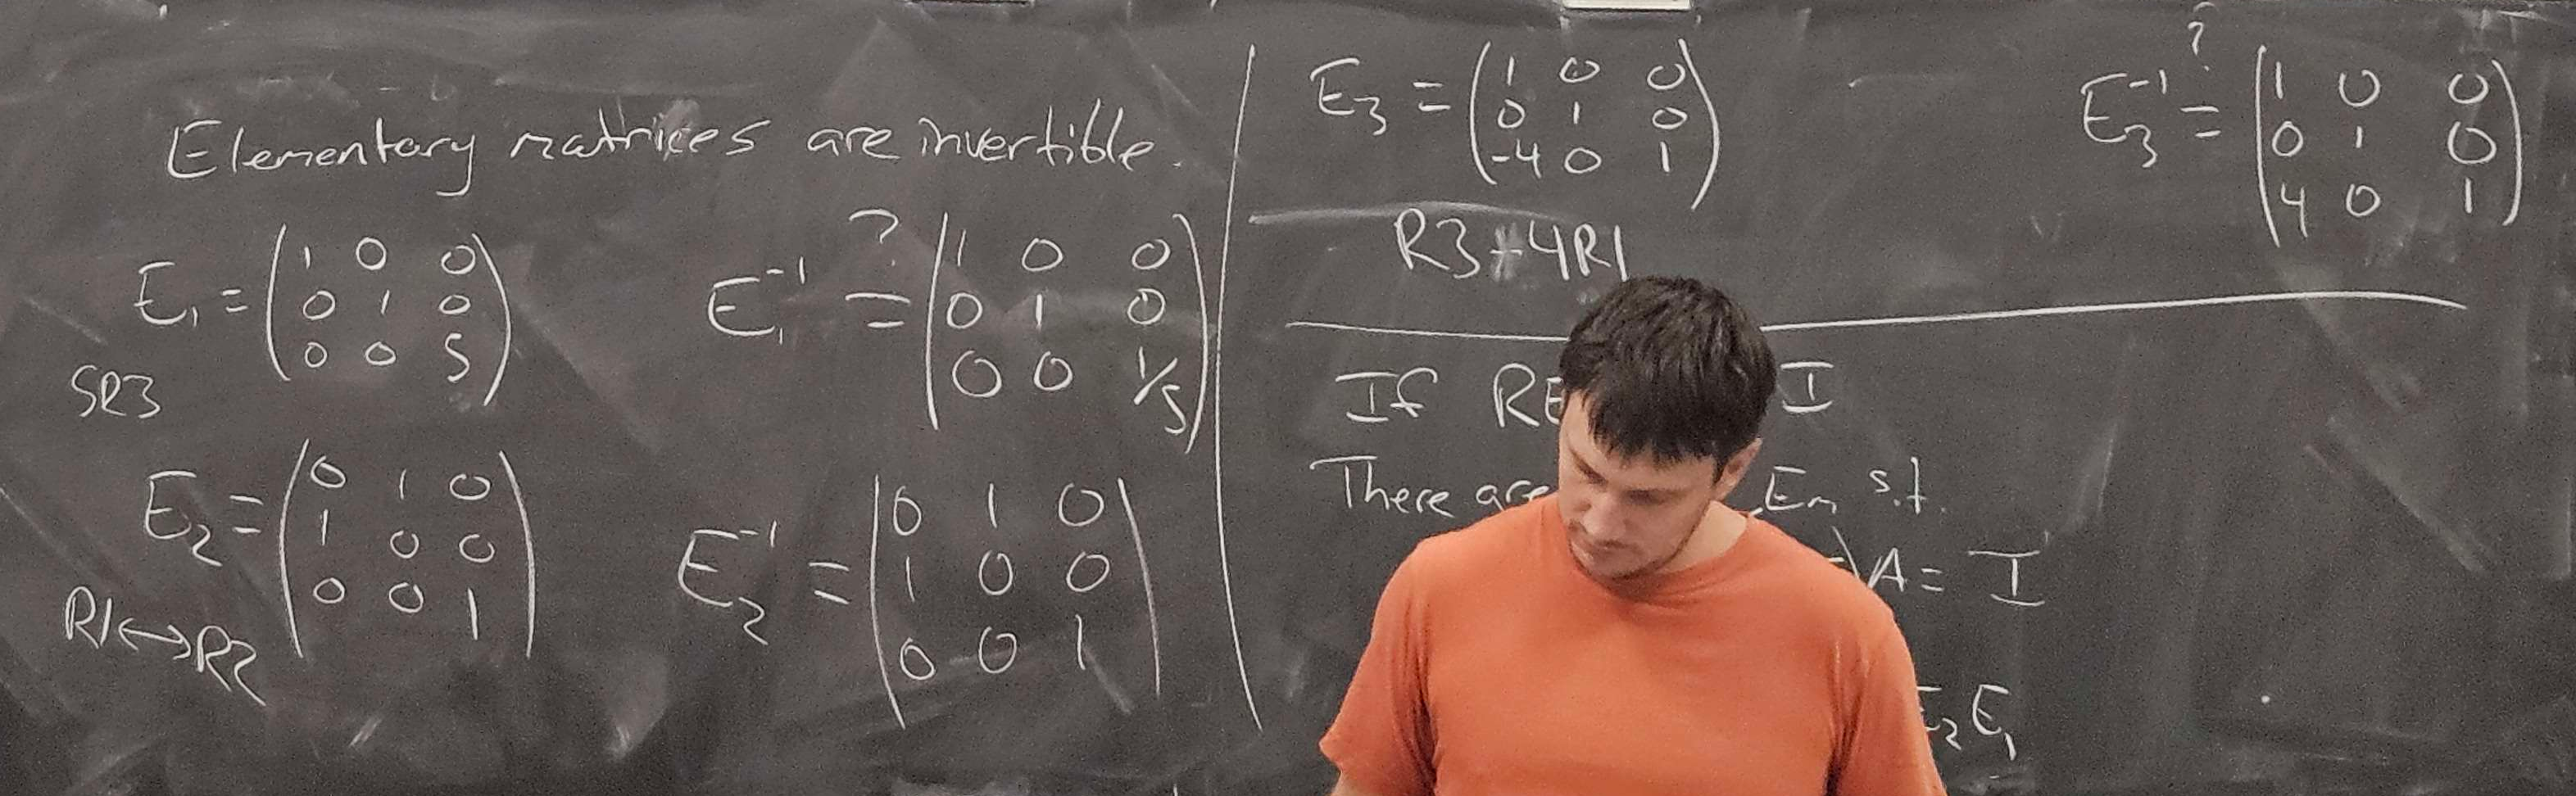 Elementary matrices are invertible.
E₁ = (1 0 0
0 1 0
0 0 5)
5R3
E₁⁻¹ ?= (1 0 0
0 1 0
0 0 1/5)
E₂ = (0 1 0
1 0 0
0 0 1)
R1↔R2
E₂⁻¹ = (0 1 0
1 0 0
0 0 1)
E₃ = (1 0 0
0 1 0
-4 0 1)
R3-4R1
E₃⁻¹ ?= (1 0 0
0 1 0
4 0 1)
If I
There are Em s.t.
)A = I
E₂E₁